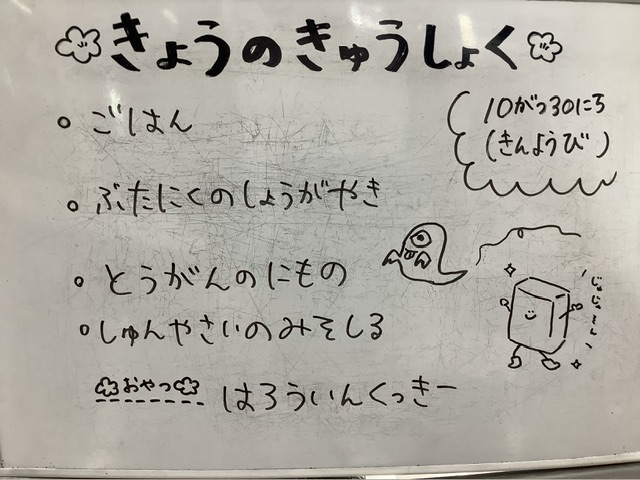 きょうのきゅうしょく
10がつ30にち
(きんようび)
・ごはん
・ぶたにくのしょうがやき
・とうがんのにもの
・しゅんやさいのみそしる
おやつ はろうぃんくっきー